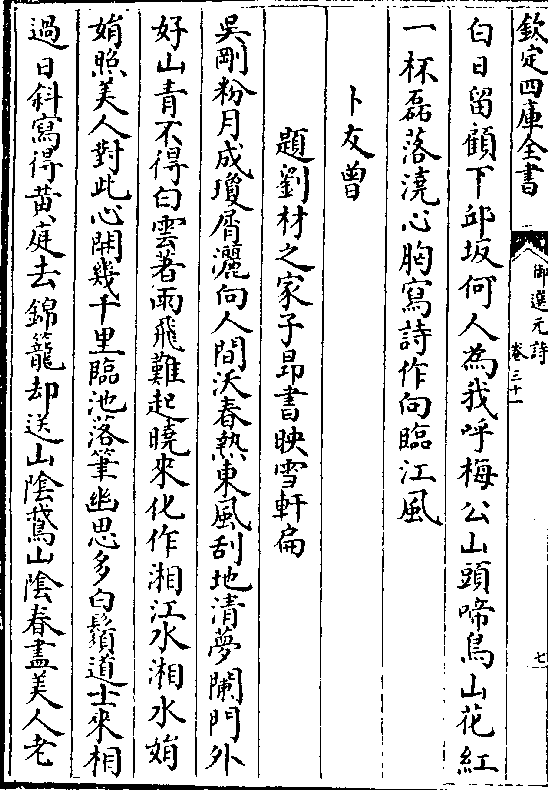 欽定四庫全書
御選元詩
卷三十一
七
白日留顧下邱坂何人為我呼梅公山頭啼鳥山花紅
一杯磊落澆心胸寫詩作向臨江風
卜友曾
題劉材之家子昻書映雪軒扁
吳剛粉月成瓊屑灑向人間沃春熱東風刮地清夢闌門外
好山青不得白雲著雨飛難起曉來化作湘江水湘水娟
娟照美人對此心開幾千里臨池落筆幽思多白鬚道士來相
過日斜寫得黃庭去錦籠却送山陰鵞山陰春盡美人老